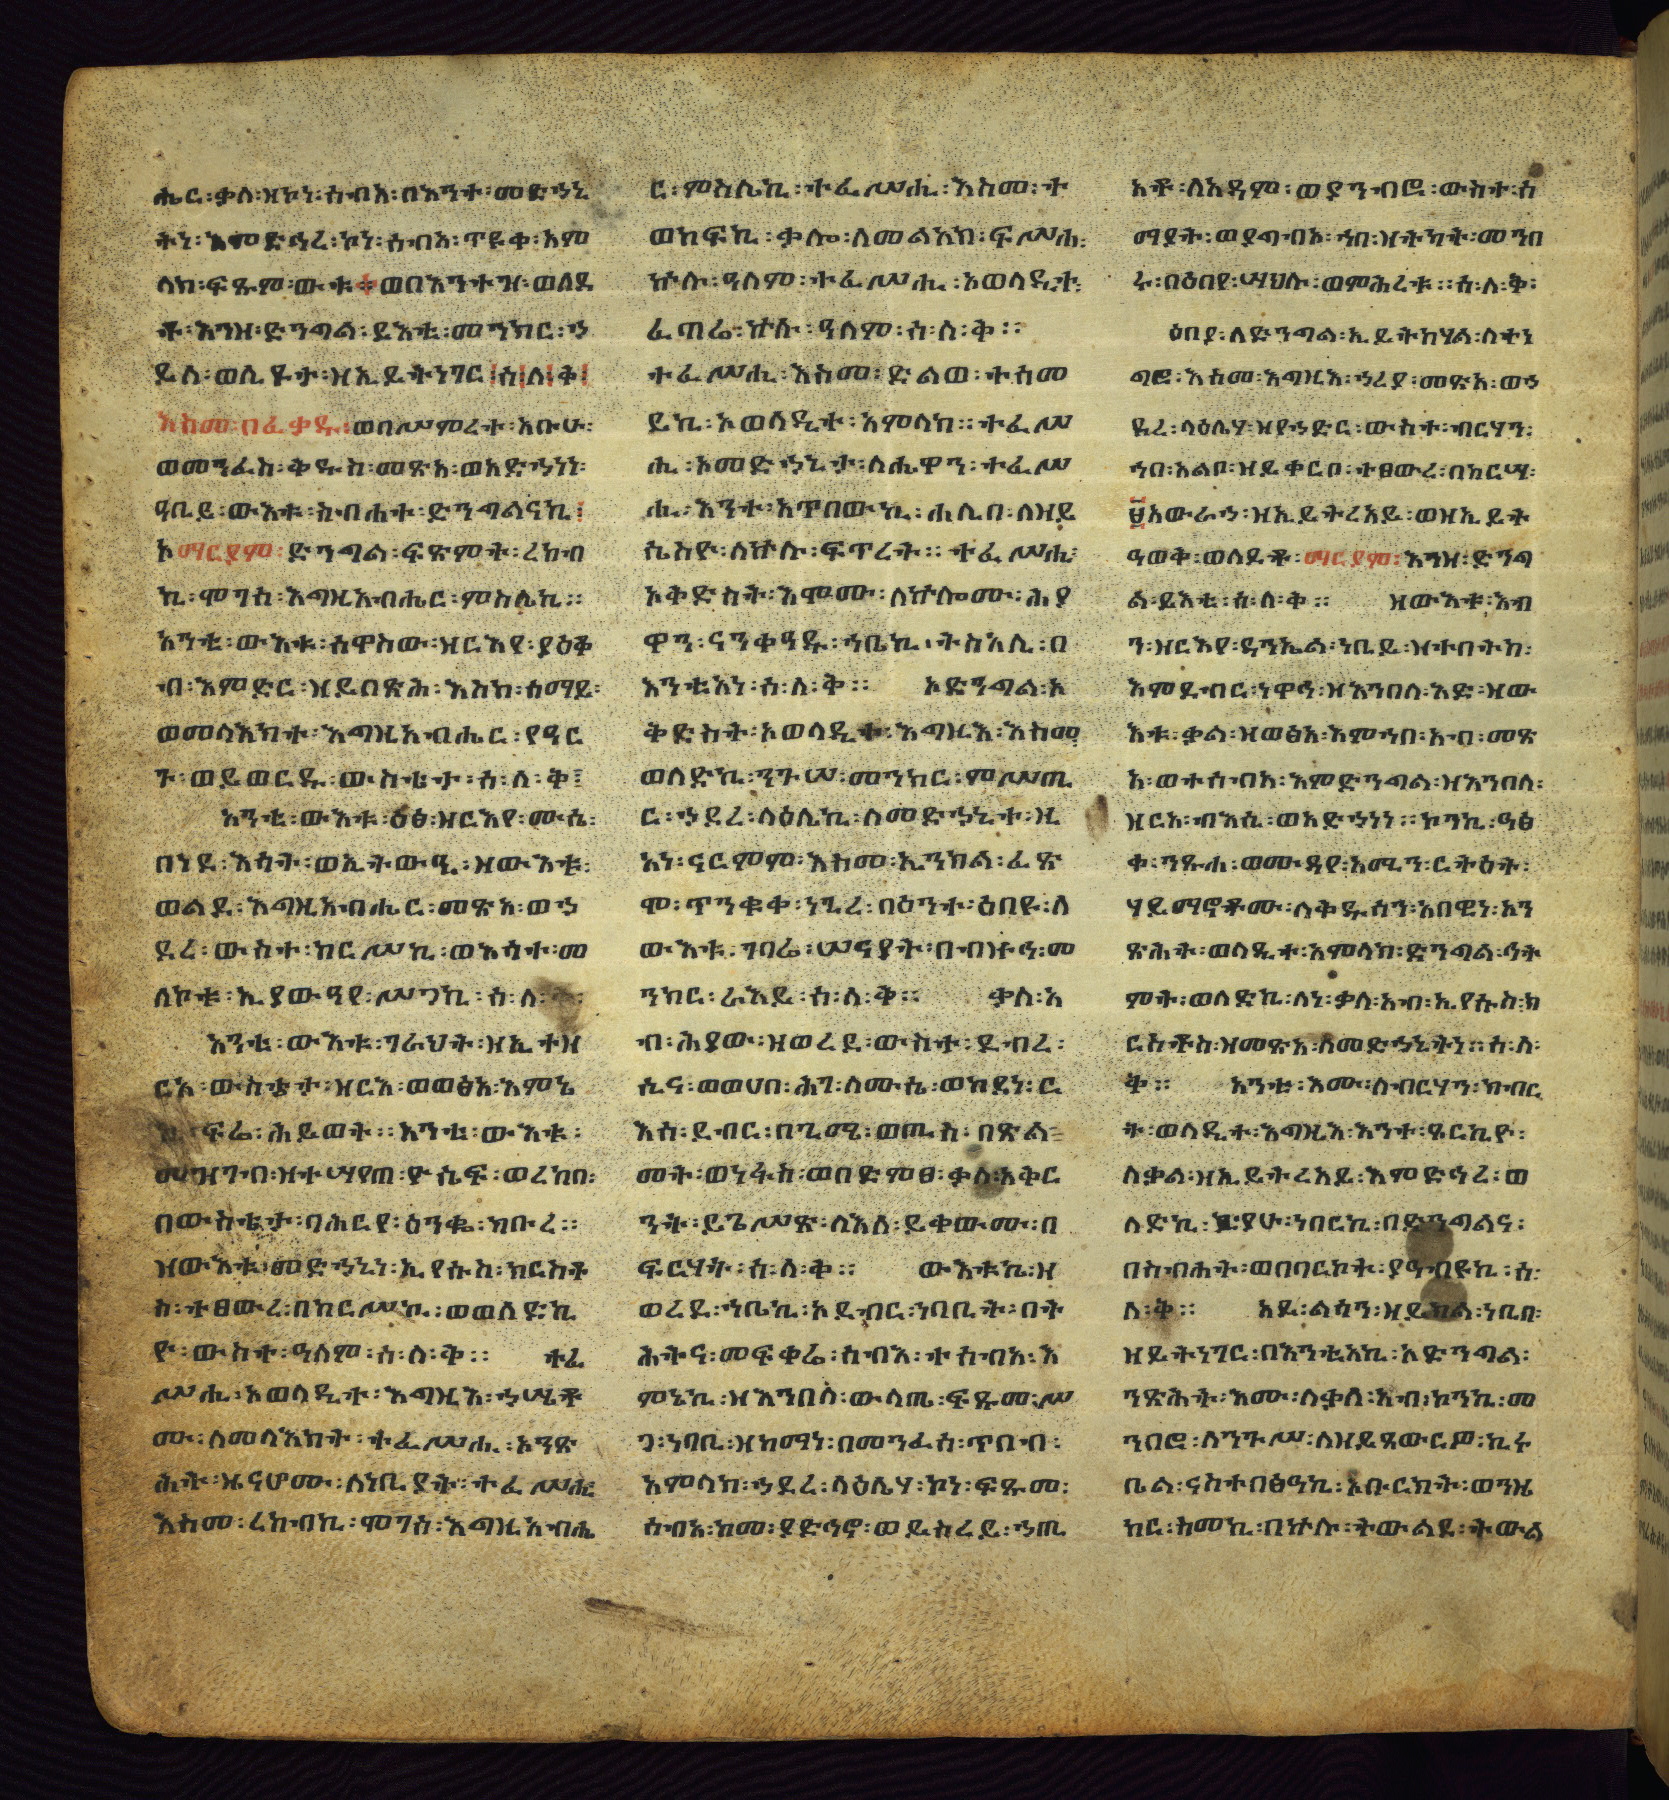 ሔር፡ቃለ፡ዘኮነ፡ሰብአ፡በእንተ፡መድኀኒ
ትነ፡እምድኅረ፡ኮነ፡ሰብአ፡ጥዩቀ፡አም
ላክ፡ፍጹም፡ውእቱ፡ወበእንተዝ፡ወለደ
ቶ፡እንዘ፡ድንግል፡ይእቲ፡መንክር፡ኀ
ይለ፡ወሊዶታ፡ዘኢይትነገር፡ሰ፡ለ፡ቅ፡
እስመ፡በፈቃዱ፡ወበሥምረተ፡አቡሁ፡
ወመንፈስ፡ቅዱስ፡መጽአ፡ወአድኀነነ፡
ዓቢይ፡ውእቱ፡ስብሐተ፡ድንግልናኪ፡
ኦማርያም፡ድንግል፡ፍጽምት፡ረከብ
ኪ፡ሞገሰ፡እግዚአብሔር፡ምስሌኪ።
አንቲ፡ውእቱ፡ሰዋስው፡ዘርእየ፡ያዕቆ
ብ፡እምድር፡ዘይበጽሕ፡እስከ፡ሰማይ፡
ወመላእክተ፡እግዚአብሔር፡የዓር
ጉ፡ወይወርዱ፡ውስቴታ፡ሰ፡ለ፡ቅ፡
አንቲ፡ውእቱ፡ዕፅ፡ዘርእየ፡ሙሴ፡
በነደ፡እሳት፡ወኢትውዒ፡ዘውእቱ፡
ወልደ፡እግዚአብሔር፡መጽአ፡ወኀ
ደረ፡ውስተ፡ከርሥኪ፡ወእሳተ፡መ
ለኮቱ፡ኢያውዓየ፡ሥጋኪ፡ሰ፡ለ፡
አንቲ፡ውእቱ፡ገራህት፡ዘኢተዘ
ርአ፡ውስቴታ፡ዘርእ፡ወወፅአ፡እምኔ
ፍሬ፡ሕይወት።አንቲ፡ውእቱ፡
መዝገብ፡ዘተሣየጠ፡ዮሴፍ፡ወረከበ፡
በውስቴታ፡ባሕርየ፡ዕንቈ፡ክቡረ።
ዝውእቱ፡መድኀኒነ፡ኢየሱስ፡ክርስቶ
ስ፡ተፀውረ፡በከርሥኪ፡ወወለድኪ
ዮ፡ውስተ፡ዓለም፡ሰ፡ለ፡ቅ። ተፈ
ሥሒ፡ኦወላዲተ፡እግዚእ፡ኀሤቶ
ሙ፡ለመላእክት፡ተፈሥሒ፡አንጽ
ሕት፡ዜናሆሙ፡ለነቢያት፡ተፈሥሒ
እስመ፡ረከብኪ፡ሞገሰ፡እግዚአብሔ
ር፡ምስሌኪ፡ተፈሥሒ፡እስመ፡ተ
ወከፍኪ፡ቃሎ፡ለመልአክ፡ፍሥሐ፡
ኵሉ፡ዓለም፡ተፈሥሒ፡ኦወላዲተ፡
ፈጣሬ፡ኵሉ፡ዓለም፡ሰ፡ለ፡ቅ።
ተፈሥሒ፡እስመ፡ድልወ፡ተሰመ
ይኪ፡ኦወላዲተ፡አምላክ።ተፈሥ
ሒ፡ኦመድኀኒታ፡ለሔዋን፡ተፈሥ
ሒ፡እንተ፡አጥበውኪ፡ሐሊበ፡ለዘይ
ሴስዮ፡ለኵሉ፡ፍጥረት።ተፈሥሒ፡
ኦቅድስት፡እሞሙ፡ለኵሎሙ፡ሕያ
ዋን፡ናንቀዓዱ፡ኀቤኪ፡ትስአሊ፡በ
እንቲአነ፡ሰ፡ለ፡ቅ። ኦድንግል፡ኦ
ቅድስት፡ኦወላዲተ፡እግዚእ፡እስመ፡
ወለድኪ፡ንጉሠ፡መንክር፡ምሥጢ
ር፡ኀደረ፡ላዕሌኪ፡ለመድኀኒተ፡ዚ
አነ፡ናርምም፡እስመ፡ኢንክል፡ፈጽ
ሞ፡ጥንቁቀ፡ነጊረ፡በዕንተ፡ዕበዩ፡ለ
ውእቱ፡ገባሬ፡ሠናያት፡በብዙኅ፡መ
ንክር፡ራእይ፡ሰ፡ለ፡ቅ። ቃለ፡አ
ብ፡ሕያው፡ዘወረደ፡ውስተ፡ደብረ፡
ሲና፡ወወሀበ፡ሕገ፡ለሙሴ፡ወከደነ፡ር
እሰ፡ደብር፡በጊሜ፡ወጢስ፡በጽል
መት፡ወነፋስ፡ወበድምፀ፡ቃለ፡አቅር
ንት፡ይጌሥጽ፡ለእለ፡ይቀውሙ፡በ
ፍርሃት፡ሰ፡ለ፡ቅ። ውእቱኬ፡ዘ
ወረደ፡ኀቤኪ፡ኦደብር፡ነባቢት፡በት
ሕትና፡መፍቀሬ፡ሰብእ፡ተሰብአ፡እ
ምኔኪ፡ዘእንበለ፡ውላጤ፡ፍጹመ፡ሥ
ጋ፡ነባቢ፡ዘከማነ፡በመንፈሰ፡ጥበብ፡
አምላክ፡ኀደረ፡ላዕሌሃ፡ኮነ፡ፍጹመ፡
ሰብአ፡ከመ፡ያድኅኖ፡ወይስረይ፡ኀጢ
አቶ፡ለአዳም፡ወያንብሮ፡ውስተ፡ሰ
ማያት፡ወያግብኦ፡ኀበ፡ዘትካት፡መንበ
ሩ፡በዕበየ፡ሣህሉ፡ወምሕረቱ።ሰ፡ለ፡ቅ፡
ዕበያ፡ለድንግል፡ኢይትከሃል፡ለተነ
ግሮ፡እስመ፡እግዚእ፡ኀረያ፡መጽአ፡ወኀ
ደረ፡ላዕሌሃ፡ዘየኀድር፡ውስተ፡ብርሃን፡
ኀበ፡አልቦ፡ዘይቀርቦ፡ተፀውረ፡በከርሣ፡
፱አውራኀ፡ዘኢይትረአይ፡ወዘኢይት
ዓወቅ፡ወለደቶ፡ማርያም፡እንዘ፡ድንግ
ል፡ይእቲ፡ሰ፡ለ፡ቅ። ዝውእቱ፡እብ
ን፡ዘርእየ፡ዳንኤል፡ነቢይ፡ዘተበትከ፡
እምደብር፡ነዋኅ፡ዘእንበለ፡እድ፡ዝው
እቱ፡ቃል፡ዘወፅአ፡እምኀበ፡አብ፡መጽ
አ፡ወተሰብአ፡እምድንግል፡ዘእንበለ፡
ዘርአ፡ብእሲ፡ወአድኀነነ።ኮንኪ፡ዓፅ
ቀ፡ንጹሐ፡ወሙዳየ፡አሚን፡ርትዕት፡
ሃይማኖቶሙ፡ለቅዱሳን፡አበዊነ፡አን
ጽሕት፡ወላዲተ፡አምላክ፡ድንግል፡ኅት
ምት፡ወለድኪ፡ለነ፡ቃለ፡አብ፡ኢየሱስ፡ክ
ርስቶስ፡ዘመጽአ፡ለመድኀኒትነ።ሰ፡ለ፡
ቅ። አንቲ፡እሙ፡ለብርሃን፡ክብር
ት፡ወላዲተ፡እግዚእ፡እንተ፡ፆርኪዮ፡
ለቃል፡ዘኢይትረአይ፡እምድኅረ፡ወ
ለድኪ፡ኪያሁ፡ነበርኪ፡በድንግልና፡
በስብሐት፡ወበባርኮት፡ያዓብዩኪ፡ሰ፡
ለ፡ቅ። አይ፡ልሳን፡ዘይክል፡ነቢበ፡
ዘይትነገር፡በእንቲአኪ፡ኦድንግል፡
ንጽሕት፡እሙ፡ለቃለ፡አብ፡ኮንኪ፡መ
ንበሮ፡ለንጉሥ፡ለዘይጸውርዎ፡ኪሩ
ቤል፡ናስተበፅዓኪ፡ኦቡርክት፡ወንዜ
ከር፡ስመኪ፡በኵሉ፡ትውልደ፡ትውል